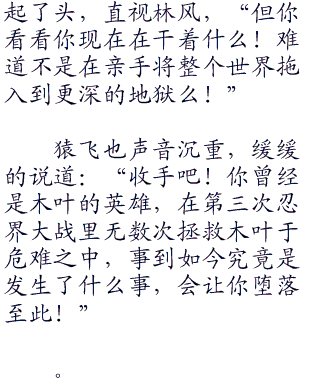 起了头，直视林风，“但你
看看你现在在干着什么！难
道不是在亲手将整个世界拖
入到更深的地狱么！”
猿飞也声音沉重，缓缓
的说道：“收手吧！你曾经
是木叶的英雄，在第三次忍
界大战里无数次拯救木叶于
危难之中，事到如今究竟是
发生了什么事，会让你堕落
至此！”
。